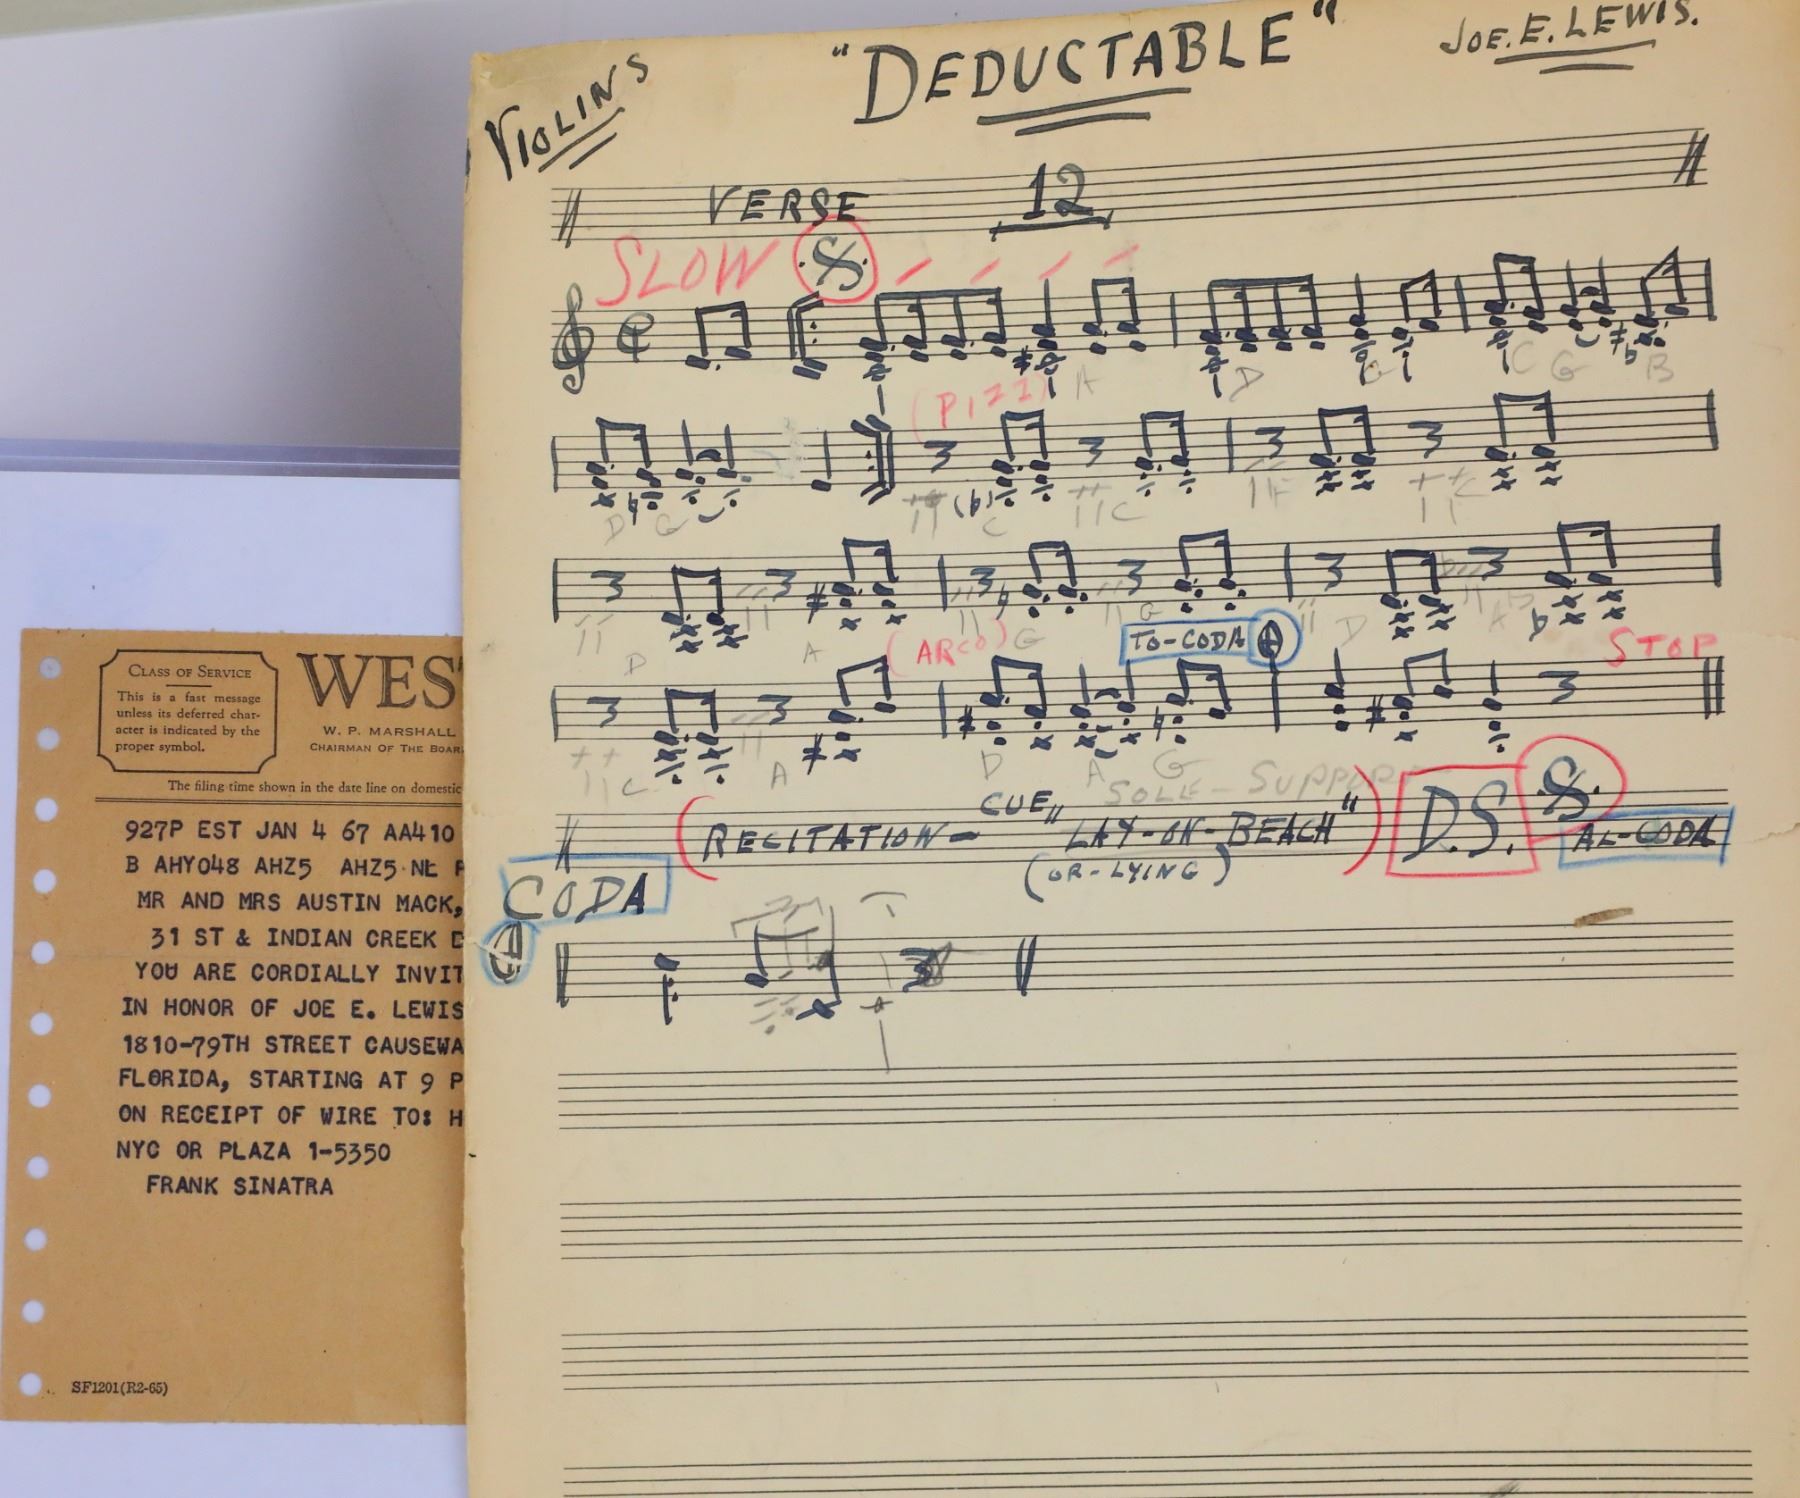 VIOLINS
"DEDUCTABLE"
JOE. E. LEWIS.
VERSE 12
SLOW
(PIZZ) A D G C G B
D G C C C
(ARCO) G G TO-CODA D A STOP
D A
C A D A G SOLE - SUPPORT
(RECITATION - CUE "LAY-ON-BEACH") D.S. AL-CODA
(OR-LYING)
CODA
CLASS OF SERVICE
This is a fast message
unless its deferred char-
acter is indicated by the
proper symbol.
WES
W. P. MARSHALL
CHAIRMAN OF THE BOAR
The filing time shown in the date line on domestic
927P EST JAN 4 67 AA410
B AHY048 AHZ5 AHZ5 NL
MR AND MRS AUSTIN MACK,
31 ST & INDIAN CREEK D
YOU ARE CORDIALLY INVIT
IN HONOR OF JOE E. LEWIS
1810-79TH STREET CAUSEWA
FLORIDA, STARTING AT 9 P
ON RECEIPT OF WIRE TO: H
NYC OR PLAZA 1-5350
FRANK SINATRA
SF1201(R2-65)